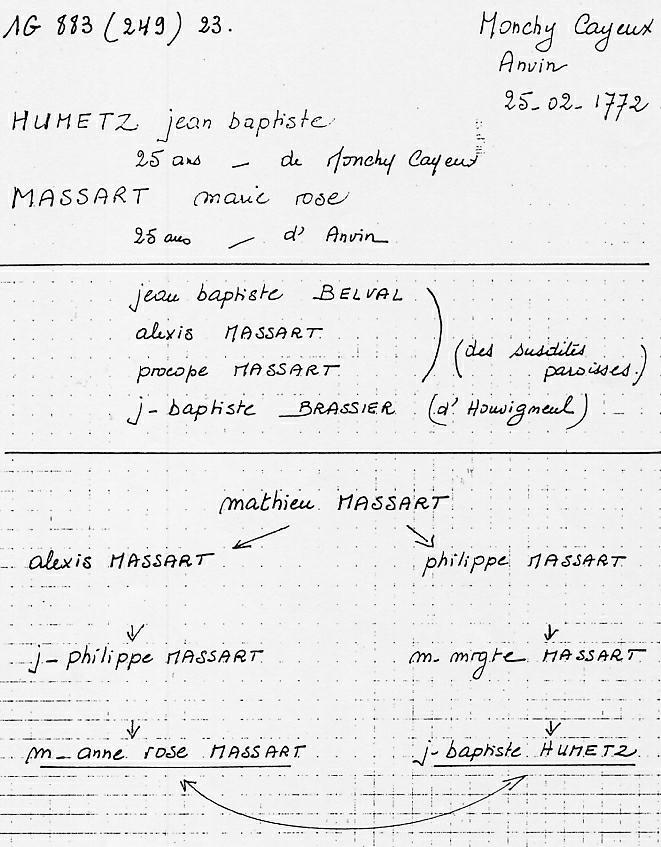 1G 883 (249) 23.
Monchy Cayeux
Anvin
25-02-1772
HUMETZ jean baptiste
25 ans - de Monchy Cayeux
MASSART marie rose
25 ans - d' Anvin
jean baptiste BELVAL
alexis MASSART
procope MASSART
(des susdites
paroisses.)
j-baptiste BRASSIER (d' Houvigneul)
mathieu MASSART
alexis MASSART philippe MASSART
j-philippe MASSART m-mrgte MASSART
m-anne rose MASSART j-baptiste HUMETZ